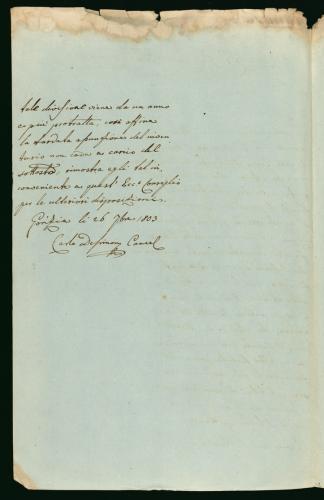 tale divisione viene da un anno
e più protratta, così affine
la tardata apunzione del inven
tario non cada a carico del
sottosto, rimostra egli tal in,
conveniente a quest' Ecc.o Consiglio
per le ulteriori disposizioni.
Gorizia li 26 9bre 1803
Carlo Cancel